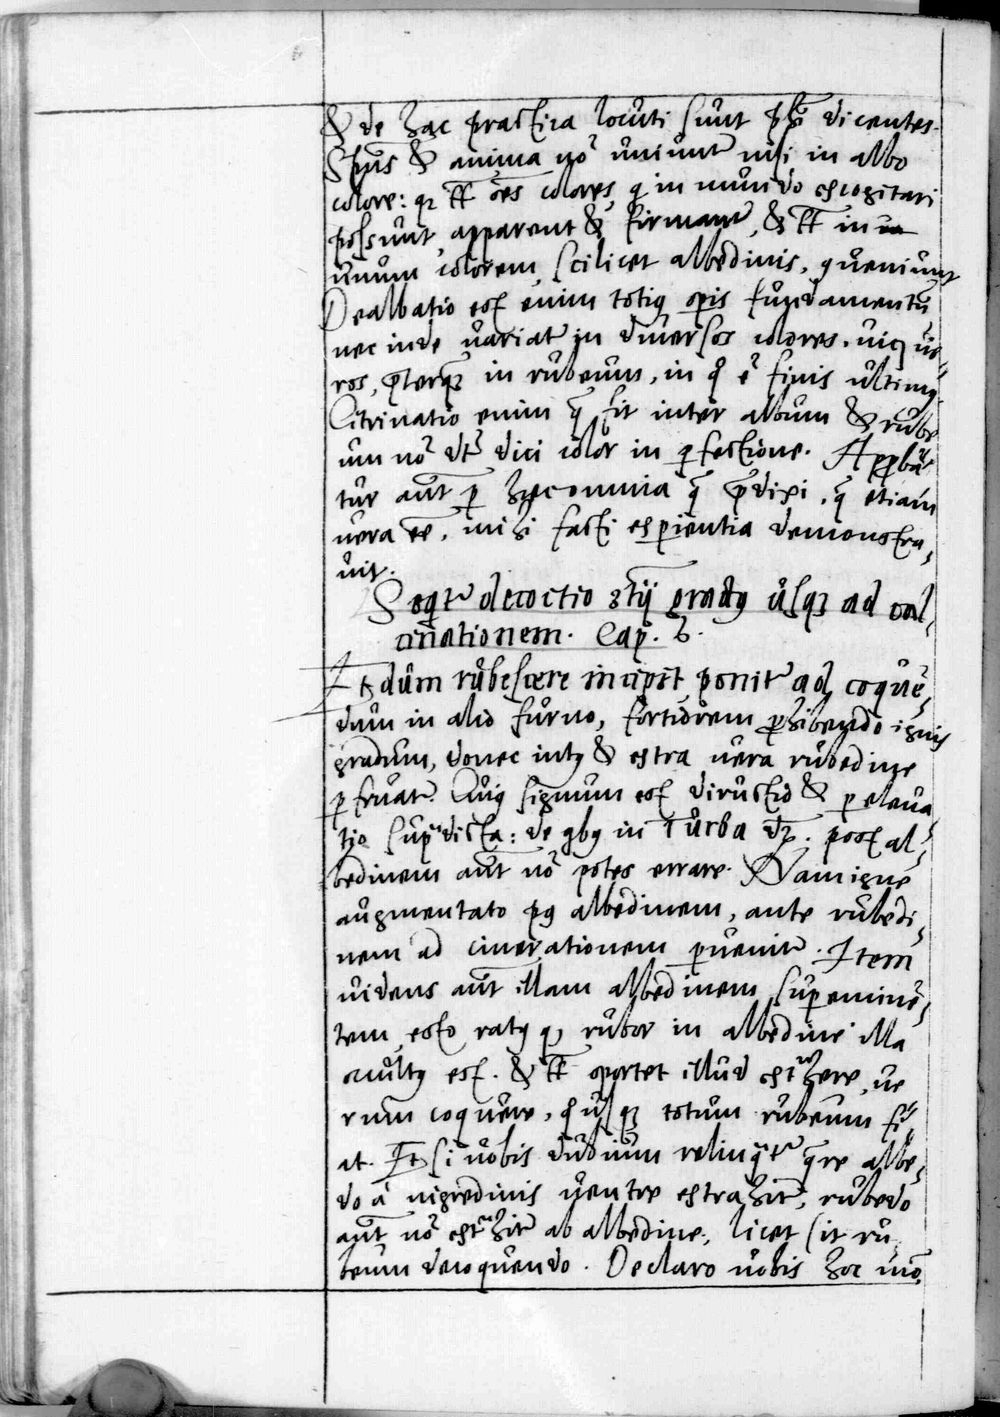 & de hac practica locuti sunt phi dicentes.
Spus & anima nō uniunt nisi in albo
colore: qz tt oēs colores q in mundo excogitari
possunt apparent & firmant, & tt in
unum colorem, scilicet albedinis, queniunt
Dealbatio est enim totiq opis fundamentū
nec inde variat in diversos colores,
ros, pterqz in rubeum, in q ē finis ultimq.
Citrinatio enim q fit inter album & rube
um nō dt dici color in pfectione. Appba
tur aut p hec omnia q pdixi, q etiam
vera ee, mihi facti expientia demonstra,
vit.
Seqt decoctio 3tij gradq usqz ad cal,
cinationem. Cap. 6.
Et dum rubescere incipit ponit ad coquē,
dum in alio furno, fortiorem phibendo ignis
gradum, donec intq & extra vera rubedine
pfruat. Cuiq signum est & p eleva
tio supdicta: de qbq in Turba dz. post al,
bedinem aut nō potes errare. Nam igne
augmentato pq albedinem, ante rubedi,
nem ad cinerationem pvenit. Item
videns aut illam albedinem supeminē,
tem esto ratq qz rubor in albedine illa
ocultq est. & tt oportet illud exthere, ve
rum coquere, qusqz totum rubeum fi,
at. Et si vobis dubium relinqt qre albe,
do a nigredinis ventre extrahit, rubedo
aut nō exthit ab albedine, licet sit ru,
beum decoquendo. Declaro vobis hoc mō,